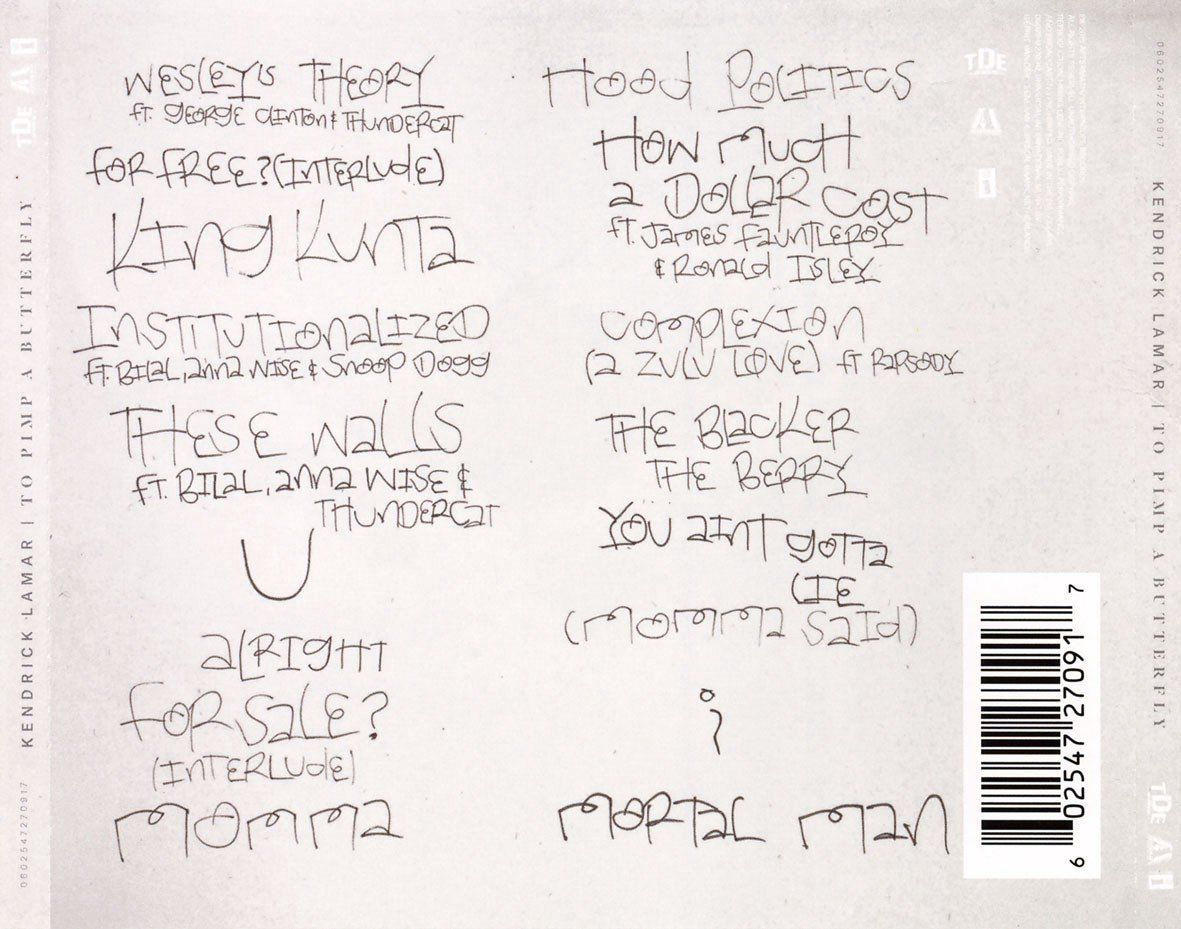 WESLEY'S THEORY
ft. GEORGE CLINTON & THUNDERCAT
FOR FREE? (INTERLUDE)
KING KUNTA
INSTITUTIONALIZED
ft. BILAL, anna WISE & SNOOP DOGG
THESE WALLS
ft. BILAL, anna WISE &
THUNDERCAT
U
aLRIGHT
FOR SALE?
(INTERLUDE)
MOMMA
HOOD POLITICS
HOW MUCH
a DOLLAR COST
ft. JAMES FAUNTLEROY
& RONALD ISLEY
COMPLEXION
(a ZULU LOVE) ft RAPSODY
THE BLACKER
THE BERRY
YOU AINT GOTTA
LIE
(MOMMA SAID)
i
MORTAL MAN
KENDRICK LAMAR | TO PIMP A BUTTERFLY
0602547270917
TDE
KENDRICK LAMAR | TO PIMP A BUTTERFLY
0602547270917
TDE
TDE
6 02547 27091 7